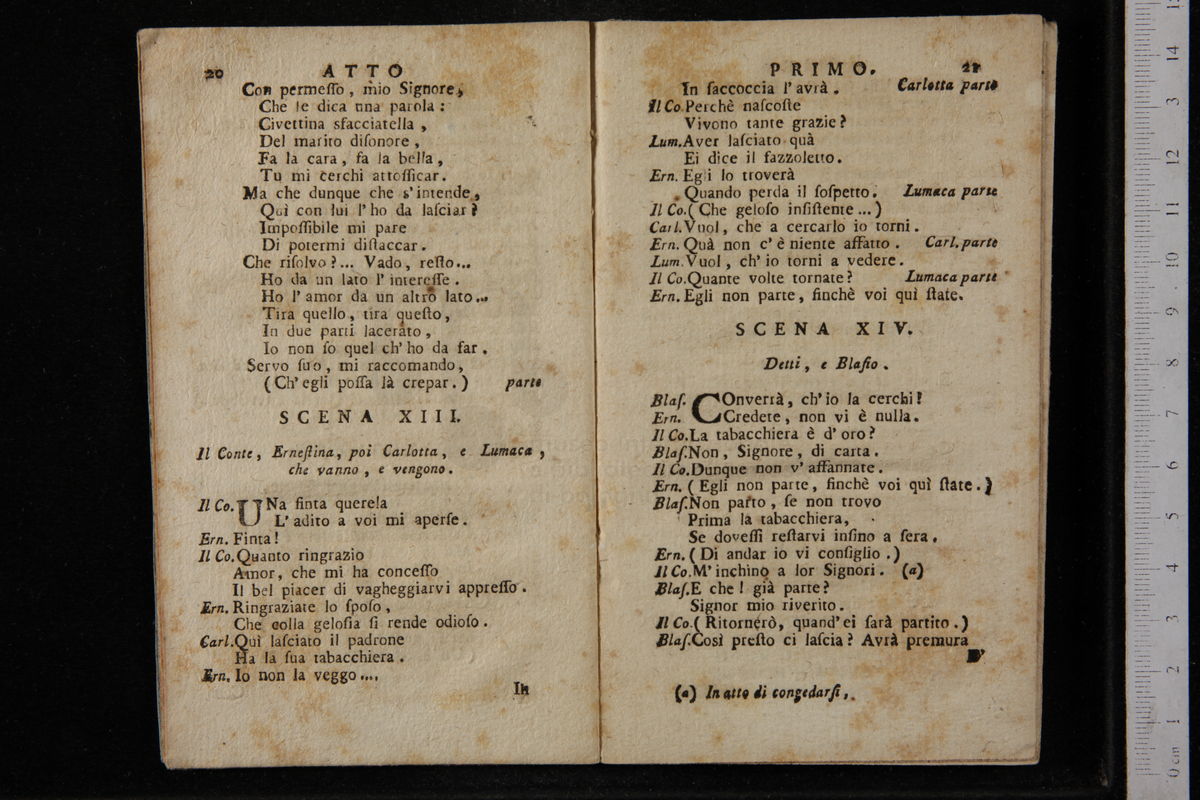 20 ATTO
Con permeſſo, mio Signore,
Che le dica una parola:
Civettina sfacciatella,
Del marito diſonore,
Fa la cara, fa la bella,
Tu mi cerchi attoſſicar.
Ma che dunque che s'intende,
Quì con lui l'ho da laſciar?
Impoſſibile mi pare
Di potermi diſtaccar.
Che riſolvo?... Vado, reſto...
Ho da un lato l'intereſſe.
Ho l'amor da un altro lato...
Tira quello, tira queſto,
In due parti lacerato,
Io non ſo quel ch'ho da far.
Servo ſuo, mi raccomando,
(Ch'egli poſſa là crepar.) parte
SCENA XIII.
Il Conte, Erneſtina, poi Carlotta, e Lumaca,
che vanno, e vengono.
Il Co. UNa finta querela
L'adito a voi mi aperſe.
Ern. Finta!
Il Co. Quanto ringrazio
Amor, che mi ha conceſſo
Il bel piacer di vagheggiarvi appreſſo.
Ern. Ringraziate lo ſpoſo,
Che colla geloſia ſi rende odioſo.
Carl. Quì laſciato il padrone
Ha la ſua tabacchiera.
Ern. Io non la veggo....
In
PRIMO. 21
In ſaccoccia l'avrà. Carlotta parte
Il Co. Perchè naſcoſte
Vivono tante grazie?
Lum. Aver laſciato quà
Ei dice il fazzoletto.
Ern. Egli lo troverà
Quando perda il ſoſpetto. Lumaca parte
Il Co. (Che geloſo inſiſtente...)
Carl. Vuol, che a cercarlo io torni.
Ern. Quà non c'è niente affatto. Carl. parte
Lum. Vuol, ch'io torni a vedere.
Il Co. Quante volte tornate? Lumaca parte
Ern. Egli non parte, finchè voi quì ſtate.
SCENA XIV.
Detti, e Blaſio.
Blaſ. COnverrà, ch'io la cerchi!
Ern. Credete, non vi è nulla.
Il Co. La tabacchiera è d'oro?
Blaſ. Non, Signore, di carta.
Il Co. Dunque non v'affannate.
Ern. (Egli non parte, finchè voi quì ſtate.)
Blaſ. Non parto, ſe non trovo
Prima la tabacchiera,
Se doveſſi reſtarvi inſino a ſera.
Ern. (Di andar io vi conſiglio.)
Il Co. M'inchino a lor Signori. (a)
Blaſ. E che! già parte?
Signor mio riverito.
Il Co. (Ritornerò, quand'ei ſarà partito.)
Blaſ. Così preſto ci laſcia? Avrà premura
(a) In atto di congedarſi.
0 cm 1 2 3 4 5 6 7 8 9 10 11 12 13 14